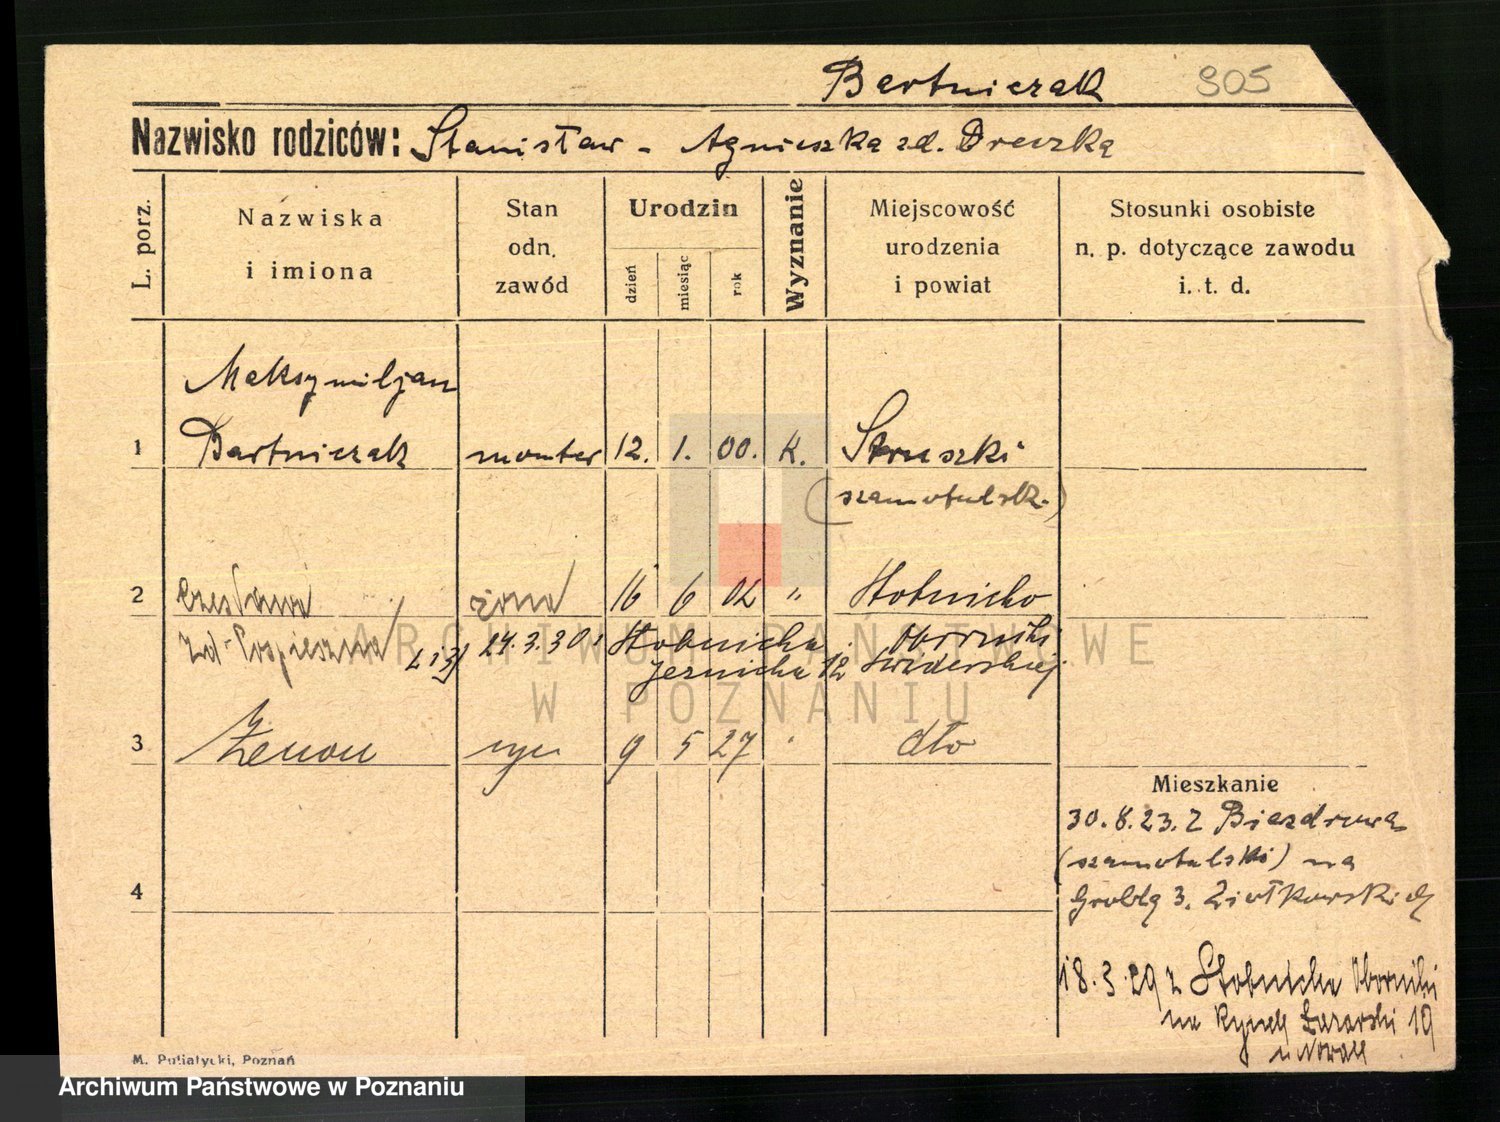 Bartniczak 905
Nazwisko rodziców: Stanisław - Agnieszka zd. Dreczka
L. porz.
Nazwiska
i imiona
Stan
odn.
zawód
Urodzin
dzień miesiąc rok
Wyznanie
Miejscowość
urodzenia
i powiat
Stosunki osobiste
n. p. dotyczące zawodu
i. t. d.
Maksymiljan
1 Bartniczak monter 12. 1. 00. K. Sruszki
(szamotulsk.)
2 Czesława żona 16 6 02 " Stobnicko
zd. Pospieszna 2 i 3) 24.3.30 Stobnicka Oborniki
Jeznicka 12 Swiderskiej
3 Zenon syn 9 5 27 " dto
Mieszkanie
30.8.23. z Biezdrowa
(szamotulski) na
4
Groblą 3. Ziółkowskiej
18.3.29 z Stobnicka Oborniki
na Rynek Łazarski 19
u Nowak
M. Putiatycki, Poznań
ARCHIWUM PAŃSTWOWE
W POZNANIU
Archiwum Państwowe w Poznaniu